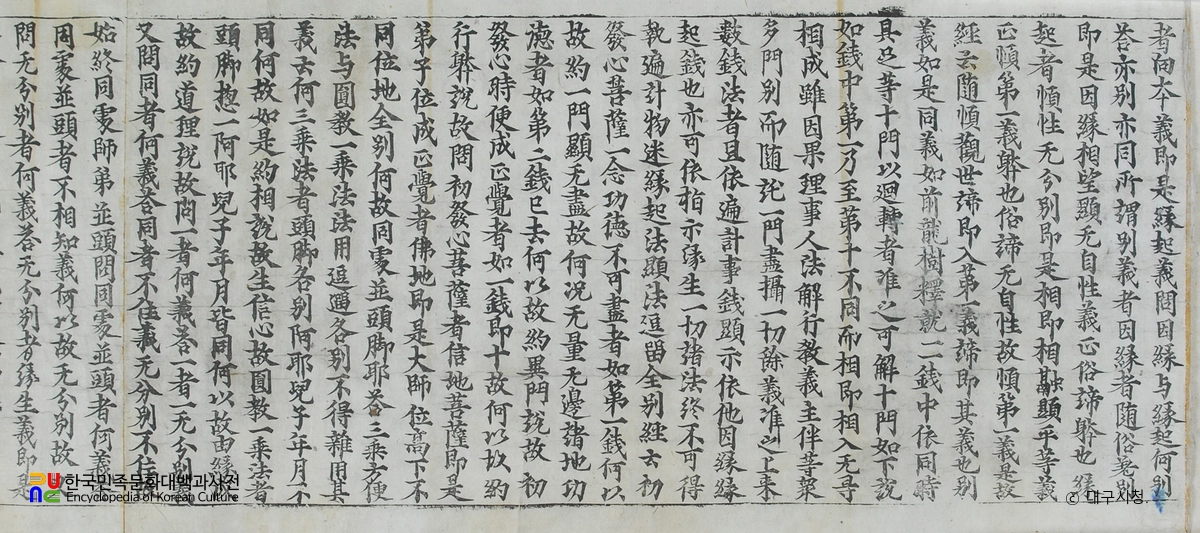 者向去今義即是緣起義問因緣与緣起何別
荅亦別亦同所謂別義者因緣者随俗差別
即是因緣相望顯无自性義正俗諦躰也緣
起者順性无分別即是相即相融顯平等義
正順第一義躰也俗諦无自性故順第一義是故
經云随順觀世諦即入第一義諦即其義也別
義如是同義如前龍樹釋說二錢中依同時
具足等十門以迴轉者准之可解十門如下說
如錢中第一乃至第十不同而相即相入无导
相成雖因果理事人法解行教義主伴等衆
多門別而随說一門盡攝一切餘義准之上來
數錢法者且依遍計事錢顯示依他因緣緣
起錢也亦可依相示緣生一切諸法終不可得
執遍計物迷緣起法顯法逗留全別經云初
發心菩薩一念功德不可盡者如第一錢何以
故約一門顯无盡故何况无量无邊諸地功
德者如第二錢已去何以故約異門說故初
發心時便成正覺者如一錢即十故何以故約
行躰說故問初發心菩薩者信地菩薩即是
第子位成正覺者佛地即是大師位高下不
同位地全別何故同處並頭脚耶荅三乘方便
法与圓教一乘法法用逗遛各別不得雜用其
義云何三乘法者頭脚各別阿耶兒子年月不
同何故如是約相說故生信心故圓教一乘法者
頭脚惣一阿耶兒子年月皆同何以故由緣
故約道理說故問一者何義荅一者一无分別
又問同者何義荅同者不住義无分別不住
始終同處師第並頭問同處並頭者何義
同處並頭者不相知義何以故无分別故
問无分別者何義荅无分別者緣生義即是
한국민족문화대백과사전
Encyclopedia of Korean Culture
© 대구시청